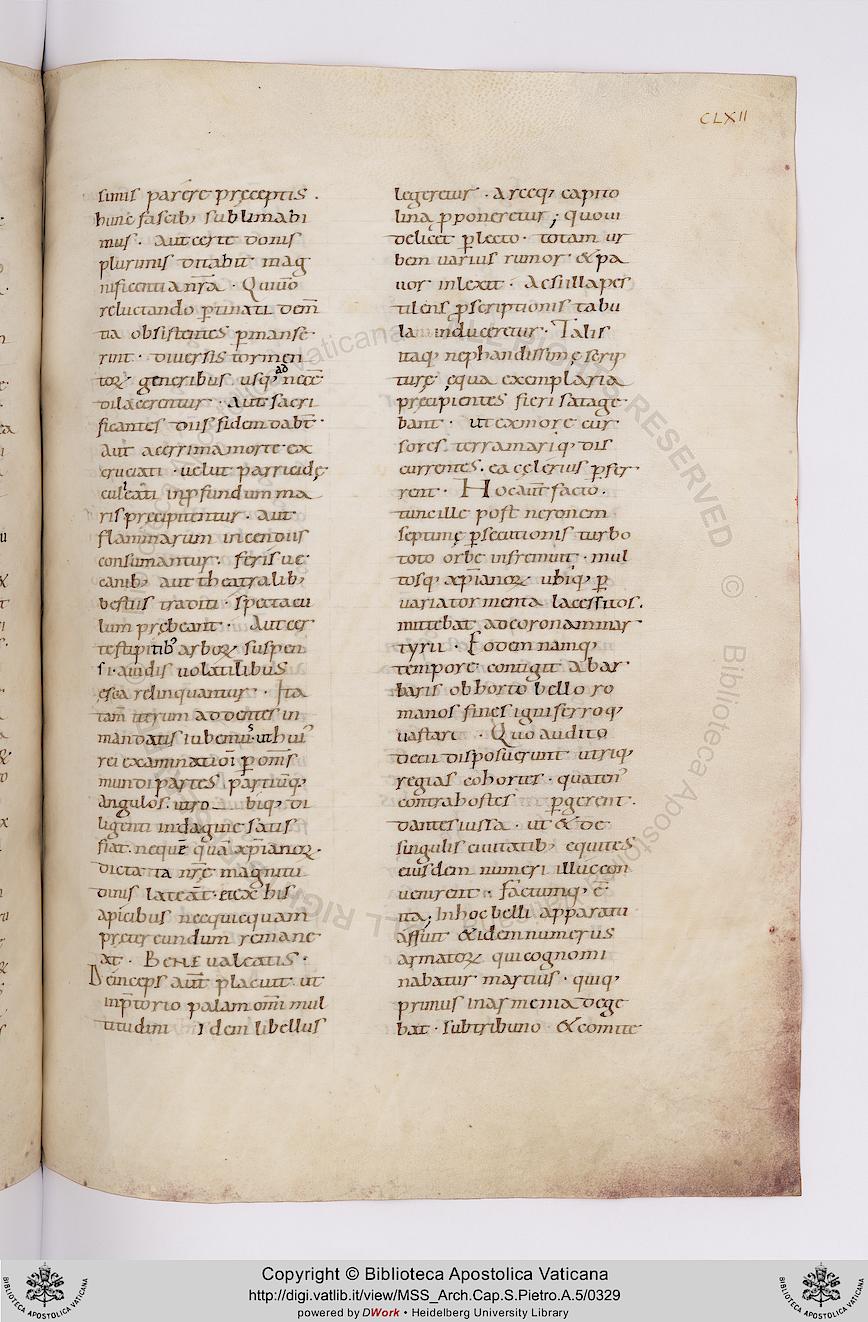 CLXII
simis parere pręceptis .
hunc fascib; sublimabi
mus . aut certe donis
plurimis ditabit mag
nificentia nr̄a . Qui u̅o
reluctando ptinati dem̅
tia obsistentes pmanse
rint . diversis tormen
toꝝ generibus . usq; ad necē
dilacerentur . Aut sacri
ficantes diis fidem dabt̅
aut acerrima morte ex
cruciati . uelut parricidę
culeati in pfundum ma
ris precipitentur . aut
flammarum incendiis
consumantur . feris ue
canib; aut theatralib;
bestiis traditi . spectacu
lum prębeant . Aut cer
te stipitib; arboꝝ suspen
si . auidis uolatilibus
esca relinquantur . Ita
tam̅ iterum ad dentes in
mandatis iubemus . ut hui'
rei examinatioi̅ p om̅s
mundi partes partiu̅q;
angulos . utro biq; di
ligenti indagine satis
fiat . neque̅ qua̅ xp̅ianoꝝ .
dictata nr̅ę magnitu
dinis latea̅t . et ex his
apicibus nec quicquam
pretereundum remane
at . BENE ualeatis .
Deinceps aut̅ placuit ut
inptorio palam om̅i mul
titudini idem libellus
legeretur . Arceq; capito
lina pponeretur ; quo ui
delicet plecto . totam ur
bem uarius rumor & pa
uor inlexit . Ac si illa pes
tilens pscriptionis tabu
la induceretur . Talis
itaq; nephandissimę scrip
turę ęqua exemplaria
pręcipientes fieri satage
bant . ut ex more cur
sores terra mariq; dis
currentes . ea celerius pfer
rent . Hoc aut̅ facto .
tunc ille post neronem
septimę psecutionis turbo
toto orbe infremuit . mul
tosq; xp̅ianoꝝ ubiq; p
uaria tormenta lacessitos .
mittebat ad coronam mar
tyrii . Eodem namq;
tempore contigit a bar
baris oborto bello ro
manos fines igni ferroq;
uastari . Quo audito
decii disposuerunt utriq;
regias cohortes . quaten'
contra hostes pgerent .
dantes iussa . ut & de
singulis ciuitatib; equites
eiusdem numeri illuc con
uenirent . factumq; e̅
ita ; In hoc belli apparatu
affuit & idem numerus
armatoꝝ qui cognomi
nabatur martius . quiq;
primus in armenia dege
bat . sub tribuno & comite
Copyright © Biblioteca Apostolica Vaticana
http://digi.vatlib.it/view/MSS_Arch.Cap.S.Pietro.A.5/0329
powered by DWork • Heidelberg University Library